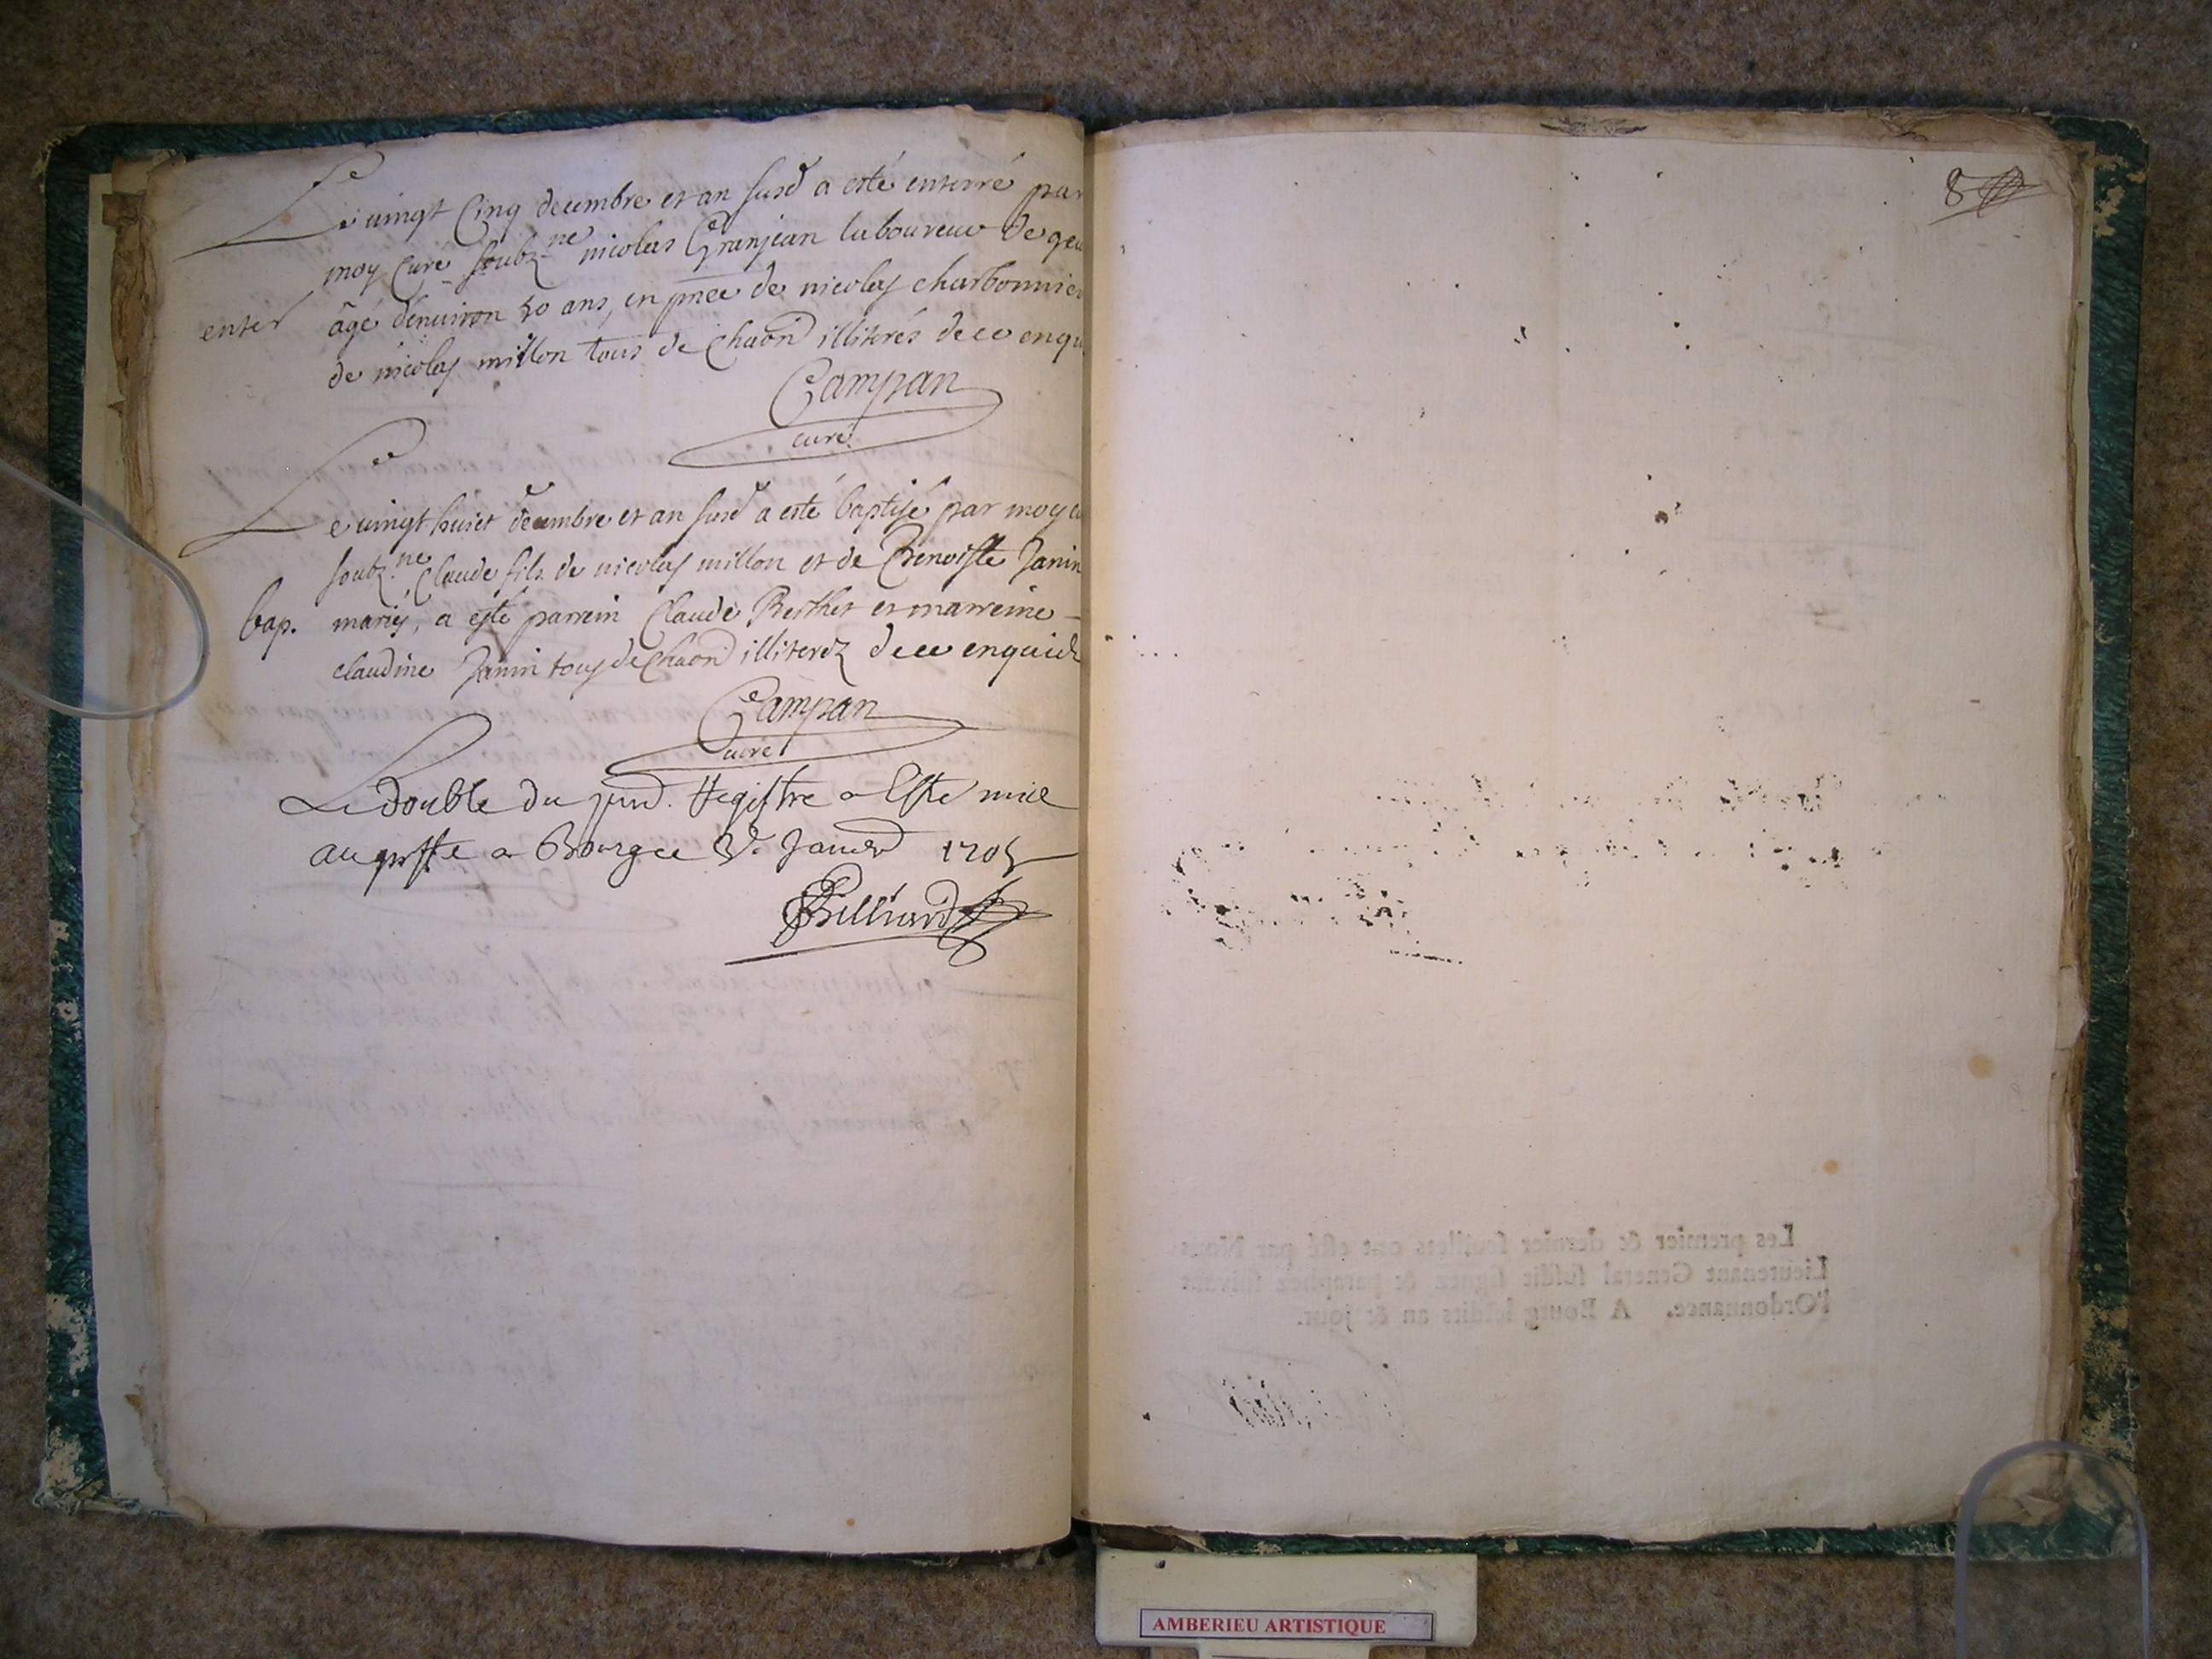 Le vingt Cinq decembre et an susd a esté enterré par
moy Curé soubz.ne nicolas Granjean laboureur de
enter âgé d'environ 50 ans, en pnce de nicolas charbonnier
de nicolas millon tous de Chaon illiterés de ce enqu
Campan
curé
Le vingt huict decembre et an susd a esté baptisé par moy cu
soubz.ne Claude fils de nicolas millon et de Benoiste Janin
bap. mariés, a esté parrein Claude Berthet et marreine
claudine Janin tous de Chaon illiterez de ce enquis
Campan
curé
Le double du pnd. Registre a Esté mis
au greffe a Bourg ce Janvier 1705
Billiard
8
Les premier & dernier feuillets ont esté par Nous
Lieutenant General susdit signez & paraphez suivant
l'Ordonnance. A Bourg lesdits an & jour.
AMBERIEU ARTISTIQUE